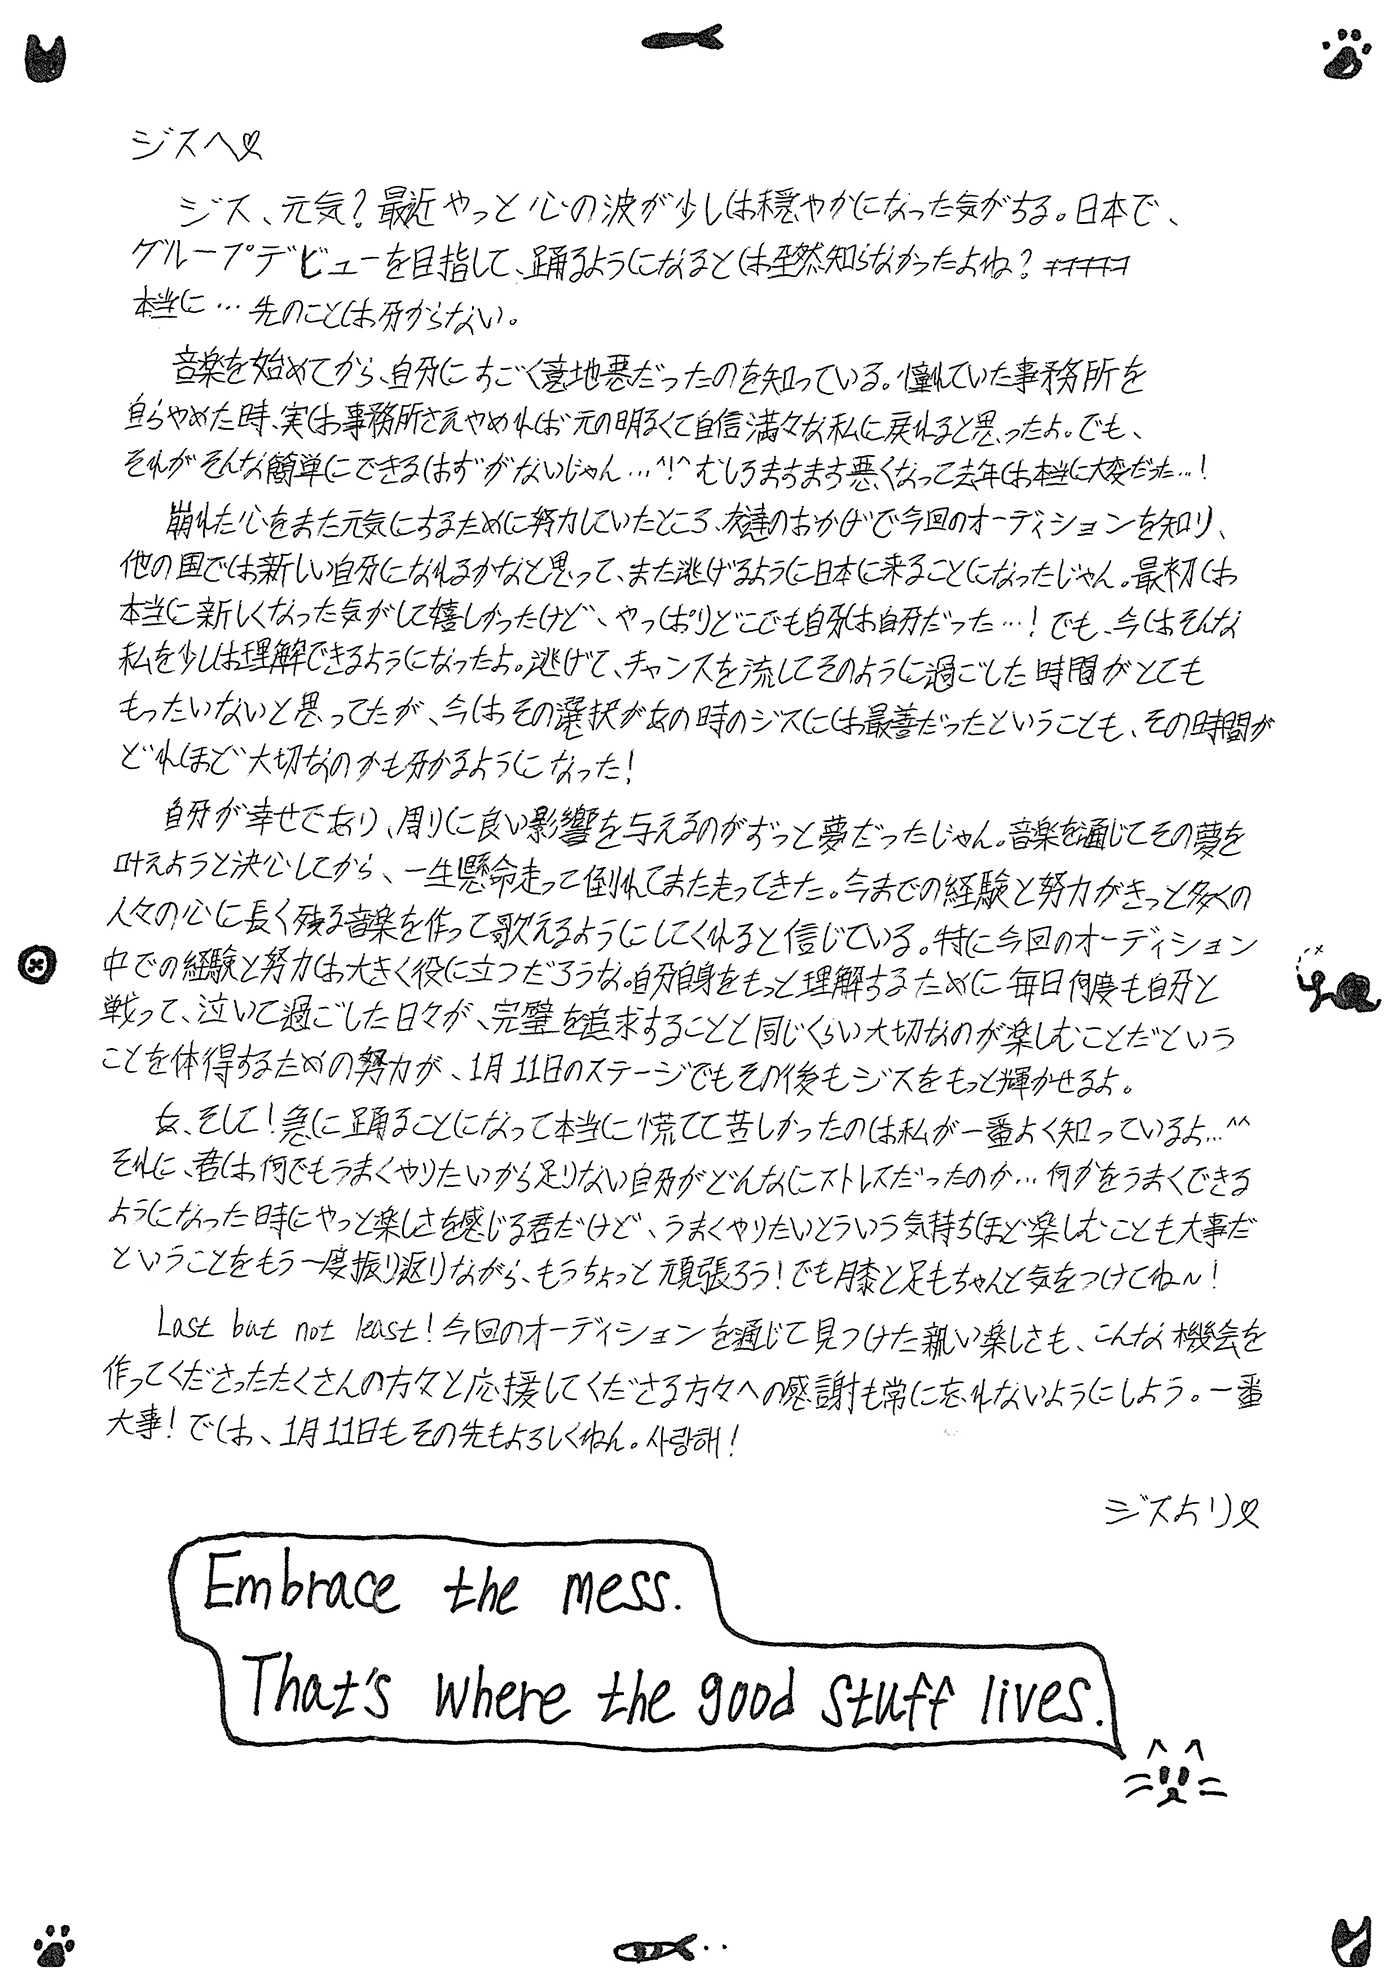 ジスへ♡
ジス、元気？最近やっと心の波が少しは穏やかになった気がする。日本で、
グループデビューを目指して、踊るようになるとは全然知らなかったよね？ㅋㅋㅋㅋㅋ
本当に…先のことは分からない。
音楽を始めてから、自分にすごく意地悪だったのを知っている。憧れていた事務所を
自らやめた時、実は事務所さえやめれば元の明るくて自信満々な私に戻れると思ったよ。でも、
それがそんな簡単にできるはずがないじゃん…^!^むしろますます悪くなって去年は本当に大変だった…!
崩れた心をまた元気にするために努力していたところ、友達のおかげで今回のオーディションを知り、
他の国では新しい自分になれるかなと思って、また逃げるように日本に来ることになったじゃん。最初は
本当に新しくなった気がして嬉しかったけど、やっぱりどこでも自分は自分だった…！でも、今はそんな
私を少しは理解できるようになったよ。逃げて、チャンスを流してそのように過ごした時間がとても
もったいないと思ってたが、今はその選択があの時のジスには最善だったということも、その時間が
どれほど大切なのかも分かるようになった！
自分が幸せであり、周りに良い影響を与えるのがずっと夢だったじゃん。音楽を通じてその夢を
叶えようと決心してから、一生懸命走って倒れてまた走ってきた。今までの経験と努力がきっと多くの
人々の心に長く残る音楽を作って歌えるようにしてくれると信じている。特に今回のオーディション
中での経験と努力は大きく役に立つだろうな。自分自身をもっと理解するために毎日何度も自分と
戦って、泣いて過ごした日々が、完璧を追求することと同じくらい大切なのが楽しむことだという
ことを体得するための努力が、1月11日のステージでもその後もジスをもっと輝かせるよ。
あ、そして！急に踊ることになって本当に慌てて苦しかったのは私が一番よく知っているよ…^^
それに、君は何でもうまくやりたいから足りない自分がどんなにストレスだったのか…何かをうまくできる
ようになった時にやっと楽しさを感じる君だけど、うまくやりたいとういう気持ちほど楽しむことも大事だ
ということをもう一度振り返りながら、もうちょっと頑張ろう！でも膝と足もちゃんと気をつけてね〜！
Last but not least！今回のオーディションを通じて見つけた新しい楽しさも、こんな機会を
作ってくださったたくさんの方々と応援してくださる方々への感謝も常に忘れないようにしよう。一番
大事！では、1月11日もその先もよろしくねん。사랑해！
ジスより♡
Embrace the mess.
That's where the good stuff lives.